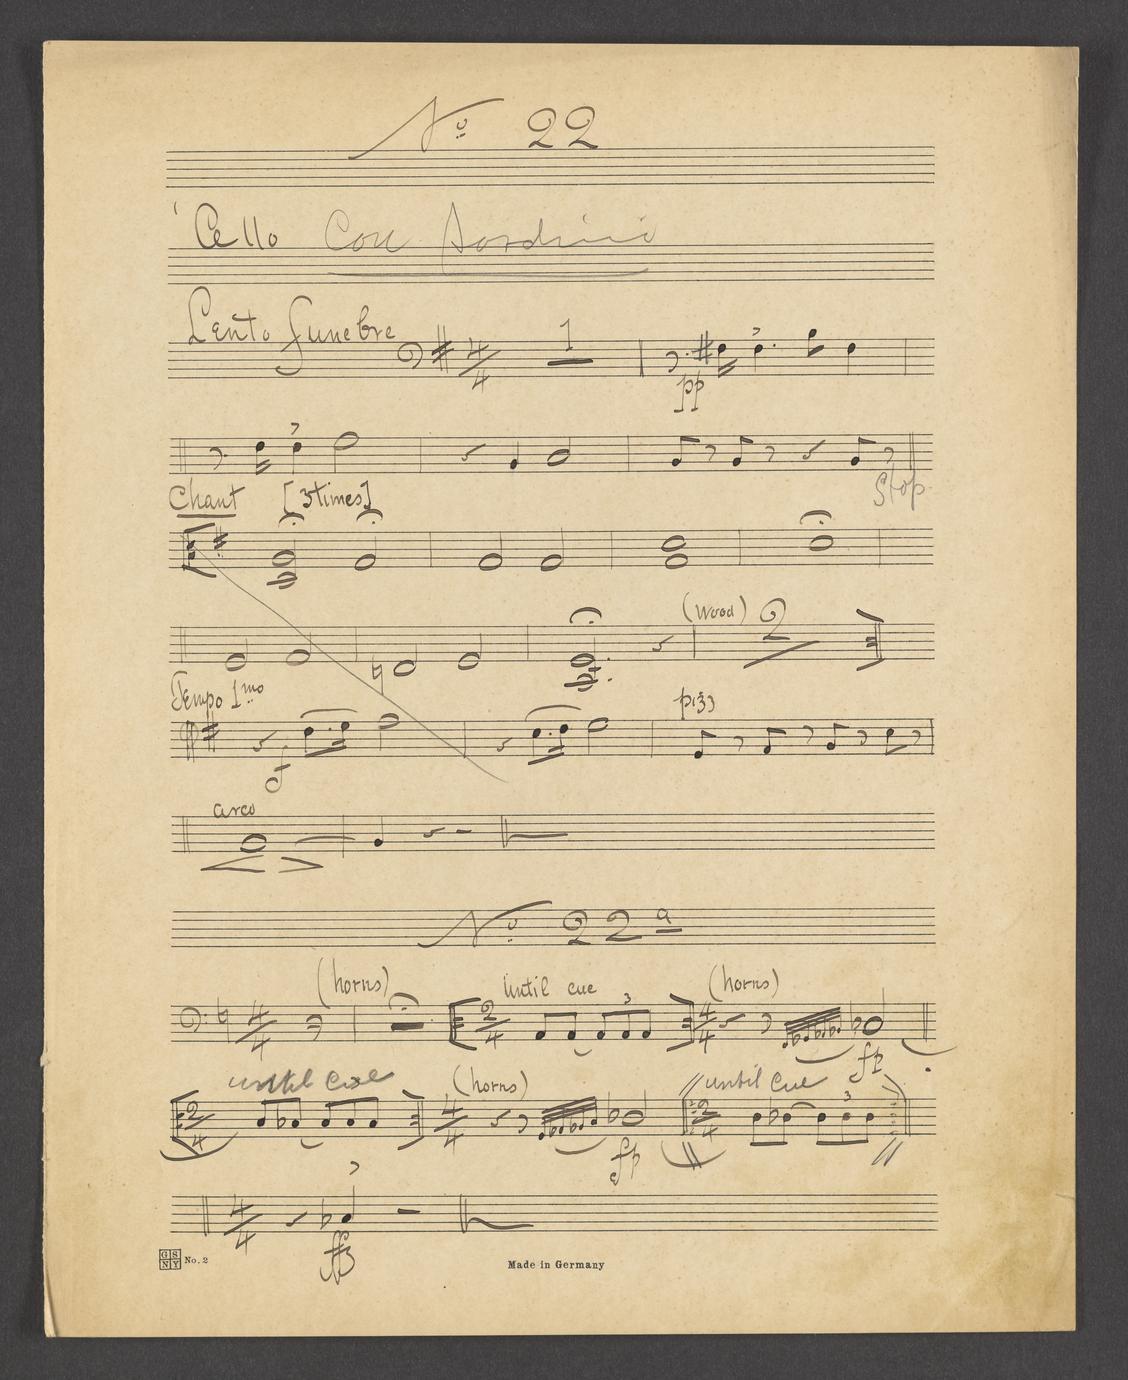 No 22
Cello Con Sordini
Lento funebre 4/4 1
pp
Stop
Chant [3 times]
(Wood) 2
Tempo 1mo
f pizz
arco
No 22a
(horns) until cue (horns)
4/4 2/4 3 4/4
fp
until cue (horns) until cue
2/4 4/4 2/4 3
fp
4/4
ffz
GS NY No. 2 Made in Germany